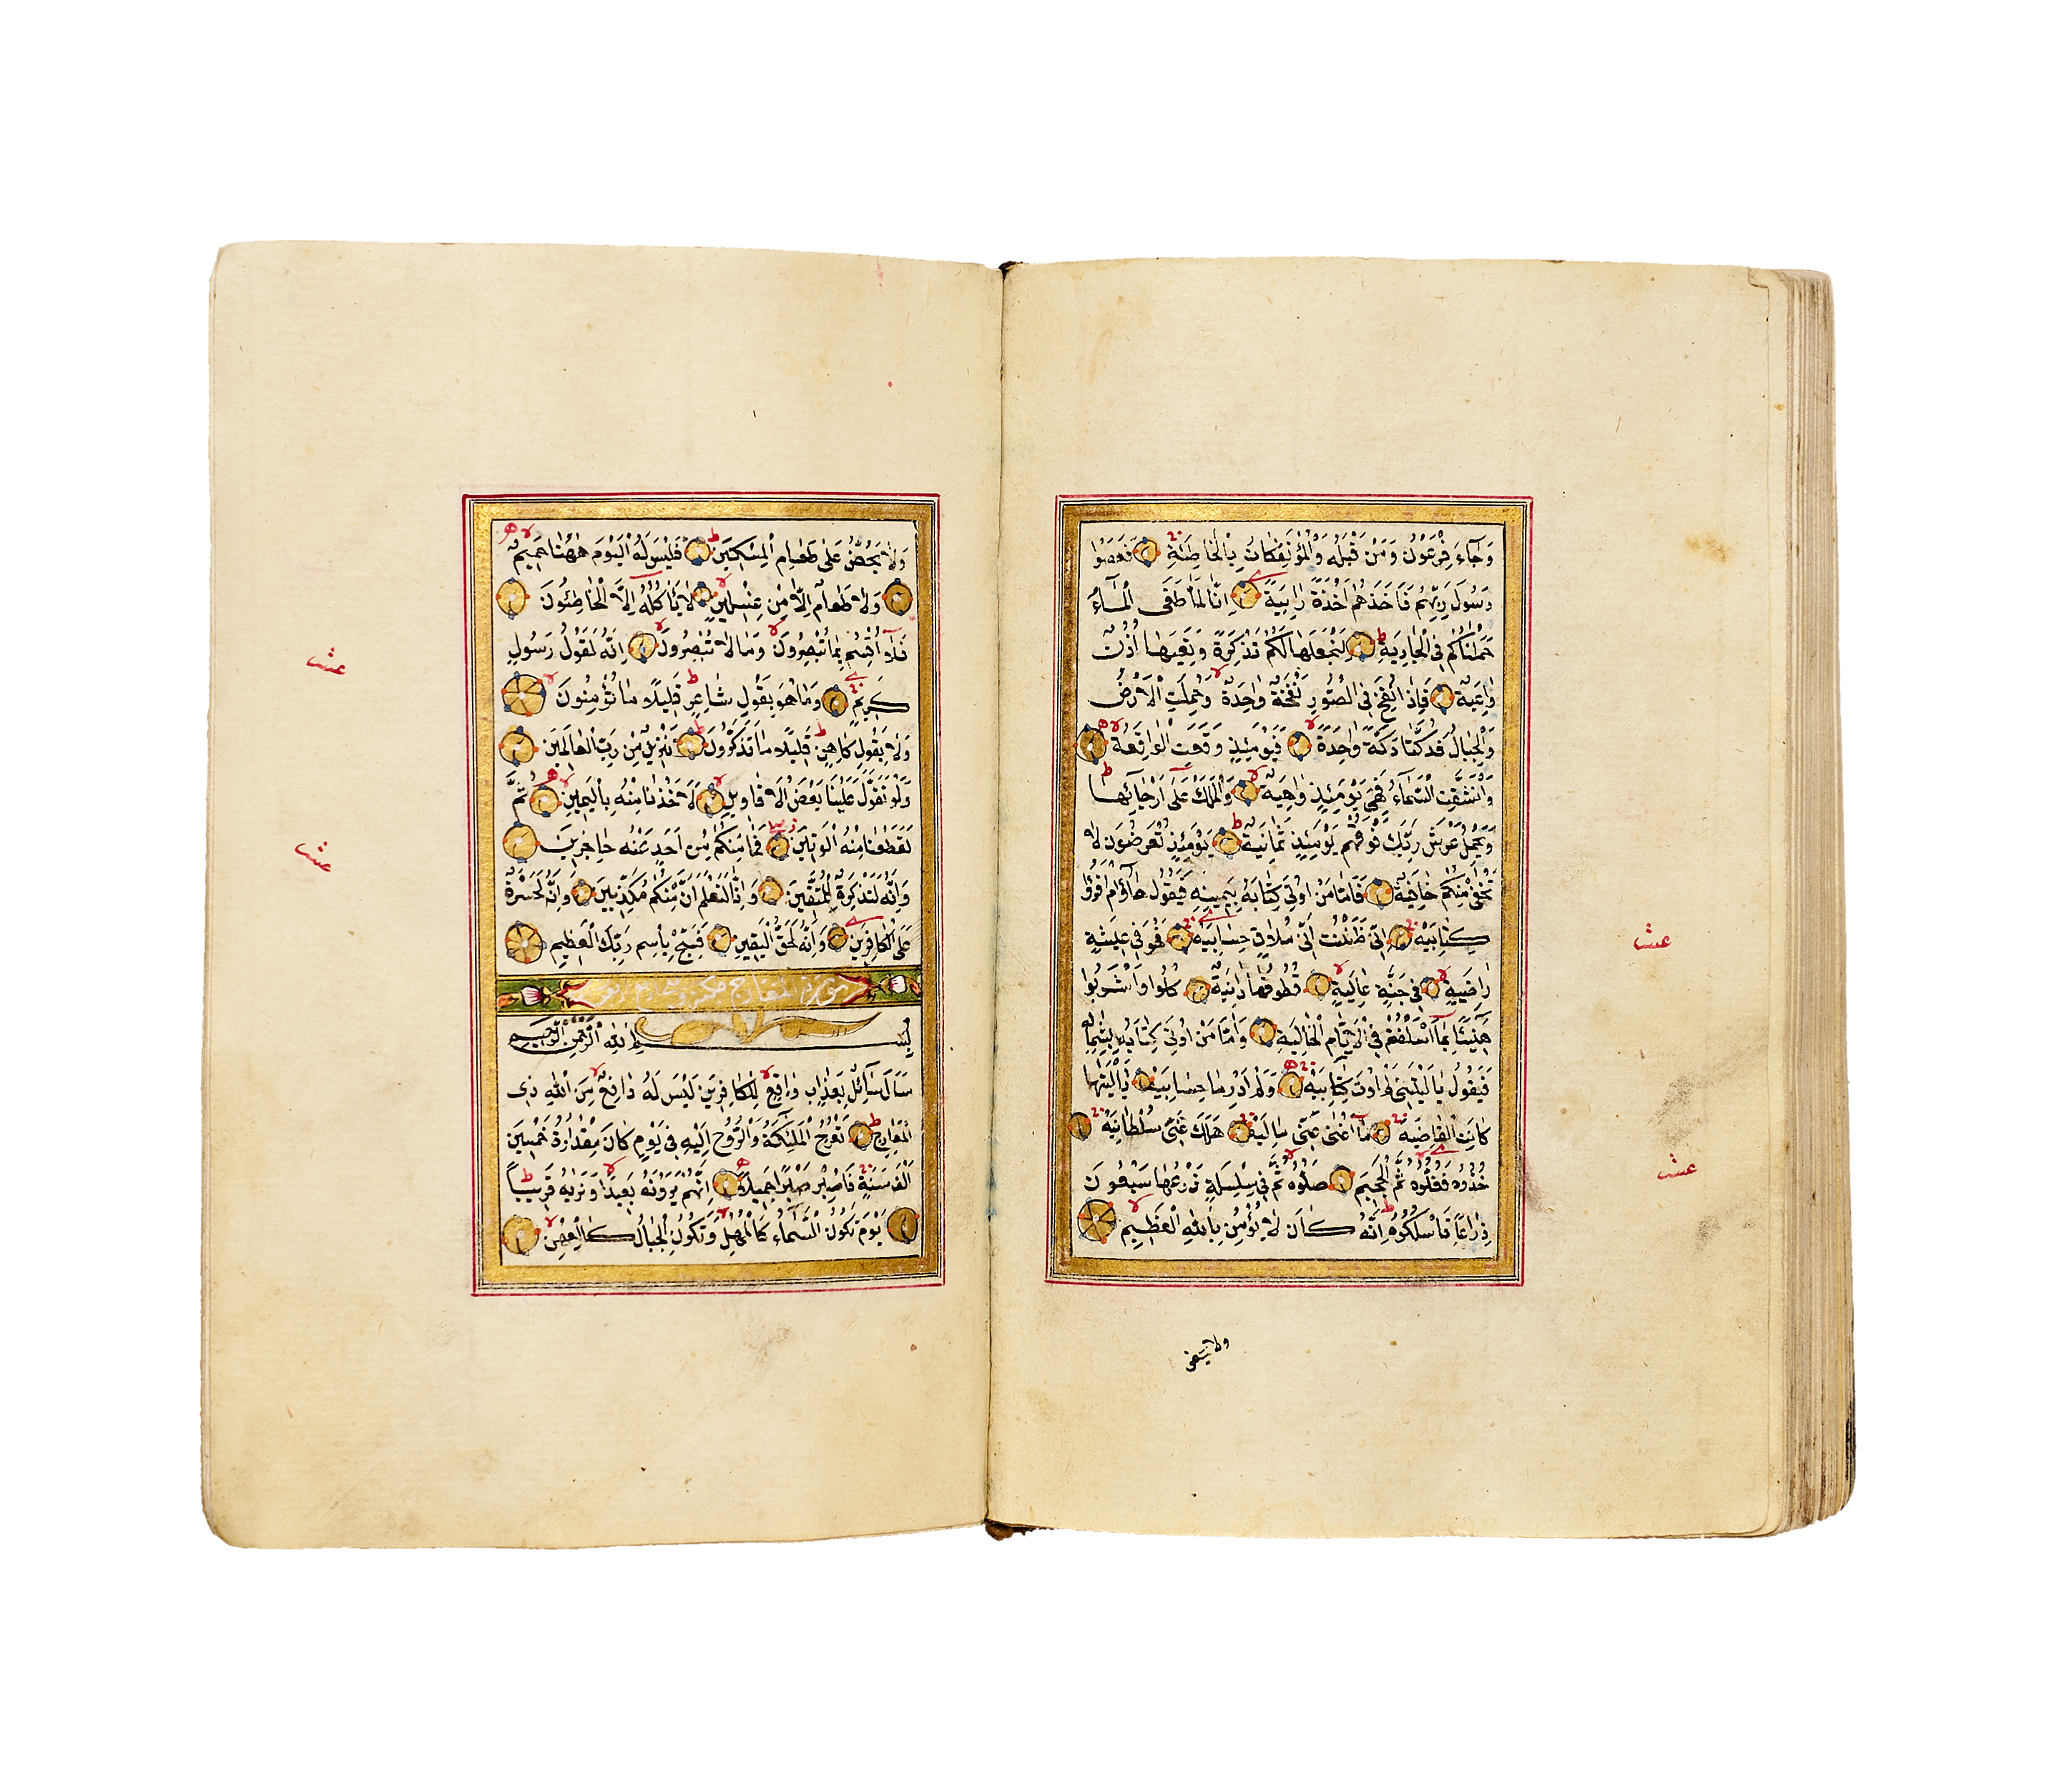 وَجَآءَ فِرْعَوْنُ وَمَنْ قَبْلَهُ وَالْمُؤْتَفِكَاتُ بِالْخَاطِئَةِ فَعَصَوْا
رَسُولَ رَبِّهِمْ فَاَخَذَهُمْ اَخْذَةً رَابِيَةً اِنَّا لَمَّا طَغَى الْمَآءُ
حَمَلْنَاكُمْ فِى الْجَارِيَةِ لِنَجْعَلَهَا لَكُمْ تَذْكِرَةً وَتَعِيَهَا اُذُنٌ
وَاعِيَةٌ فَاِذَا نُفِخَ فِى الصُّورِ نَفْخَةٌ وَاحِدَةٌ وَحُمِلَتِ الْاَرْضُ
وَالْجِبَالُ فَدُكَّتَا دَكَّةً وَاحِدَةً فَيَوْمَئِذٍ وَقَعَتِ الْوَاقِعَةُ
وَانْشَقَّتِ السَّمَآءُ فَهِىَ يَوْمَئِذٍ وَاهِيَةٌ وَالْمَلَكُ عَلَى اَرْجَآئِهَا
وَيَحْمِلُ عَرْشَ رَبِّكَ فَوْقَهُمْ يَوْمَئِذٍ ثَمَانِيَةٌ يَوْمَئِذٍ تُعْرَضُونَ لَا
تَخْفَى مِنْكُمْ خَافِيَةٌ فَاَمَّا مَنْ اُوتِىَ كِتَابَهُ بِيَمِينِهِ فَيَقُولُ هَآؤُمُ اقْرَؤُا
كِتَابِيَهْ اِنِّى ظَنَنْتُ اَنِّى مُلَاقٍ حِسَابِيَهْ فَهُوَ فِى عِيشَةٍ
رَاضِيَةٍ فِى جَنَّةٍ عَالِيَةٍ قُطُوفُهَا دَانِيَةٌ كُلُوا وَاشْرَبُوا
هَنِيئًا بِمَآ اَسْلَفْتُمْ فِى الْاَيَّامِ الْخَالِيَةِ وَاَمَّا مَنْ اُوتِىَ كِتَابَهُ بِشِمَالِهِ
فَيَقُولُ يَا لَيْتَنِى لَمْ اُوتَ كِتَابِيَهْ وَلَمْ اَدْرِ مَا حِسَابِيَهْ يَا لَيْتَهَا
كَانَتِ الْقَاضِيَةَ مَآ اَغْنَى عَنِّى مَالِيَهْ هَلَكَ عَنِّى سُلْطَانِيَهْ
خُذُوهُ فَغُلُّوهُ ثُمَّ الْجَحِيمَ صَلُّوهُ ثُمَّ فِى سِلْسِلَةٍ ذَرْعُهَا سَبْعُونَ
ذِرَاعًا فَاسْلُكُوهُ اِنَّهُ كَانَ لَا يُؤْمِنُ بِاللّٰهِ الْعَظِيمِ
ولا يحض
عشر
عشر
وَلَا يَحُضُّ عَلَى طَعَامِ الْمِسْكِينِ فَلَيْسَ لَهُ الْيَوْمَ هٰهُنَا حَمِيمٌ
وَلَا طَعَامٌ اِلَّا مِنْ غِسْلِينٍ لَا يَاْكُلُهُ اِلَّا الْخَاطِئُونَ
فَلَآ اُقْسِمُ بِمَا تُبْصِرُونَ وَمَا لَا تُبْصِرُونَ اِنَّهُ لَقَوْلُ رَسُولٍ
كَرِيمٍ وَمَا هُوَ بِقَوْلِ شَاعِرٍ قَلِيلًا مَا تُؤْمِنُونَ
وَلَا بِقَوْلِ كَاهِنٍ قَلِيلًا مَا تَذَكَّرُونَ تَنْزِيلٌ مِنْ رَبِّ الْعَالَمِينَ
وَلَوْ تَقَوَّلَ عَلَيْنَا بَعْضَ الْاَقَاوِيلِ لَاَخَذْنَا مِنْهُ بِالْيَمِينِ ثُمَّ
لَقَطَعْنَا مِنْهُ الْوَتِينَ فَمَا مِنْكُمْ مِنْ اَحَدٍ عَنْهُ حَاجِزِينَ
وَاِنَّهُ لَتَذْكِرَةٌ لِلْمُتَّقِينَ وَاِنَّا لَنَعْلَمُ اَنَّ مِنْكُمْ مُكَذِّبِينَ وَاِنَّهُ لَحَسْرَةٌ
عَلَى الْكَافِرِينَ وَاِنَّهُ لَحَقُّ الْيَقِينِ فَسَبِّحْ بِاسْمِ رَبِّكَ الْعَظِيمِ
سورة المعارج
بِسْمِ اللّٰهِ الرَّحْمٰنِ الرَّحِيمِ
سَاَلَ سَآئِلٌ بِعَذَابٍ وَاقِعٍ لِلْكَافِرِينَ لَيْسَ لَهُ دَافِعٌ مِنَ اللّٰهِ ذِى
الْمَعَارِجِ تَعْرُجُ الْمَلٰئِكَةُ وَالرُّوحُ اِلَيْهِ فِى يَوْمٍ كَانَ مِقْدَارُهُ خَمْسِينَ
اَلْفَ سَنَةٍ فَاصْبِرْ صَبْرًا جَمِيلًا اِنَّهُمْ يَرَوْنَهُ بَعِيدًا وَنَرٰيهُ قَرِيبًا
يَوْمَ تَكُونُ السَّمَآءُ كَالْمُهْلِ وَتَكُونُ الْجِبَالُ كَالْعِهْنِ
عشر
عشر